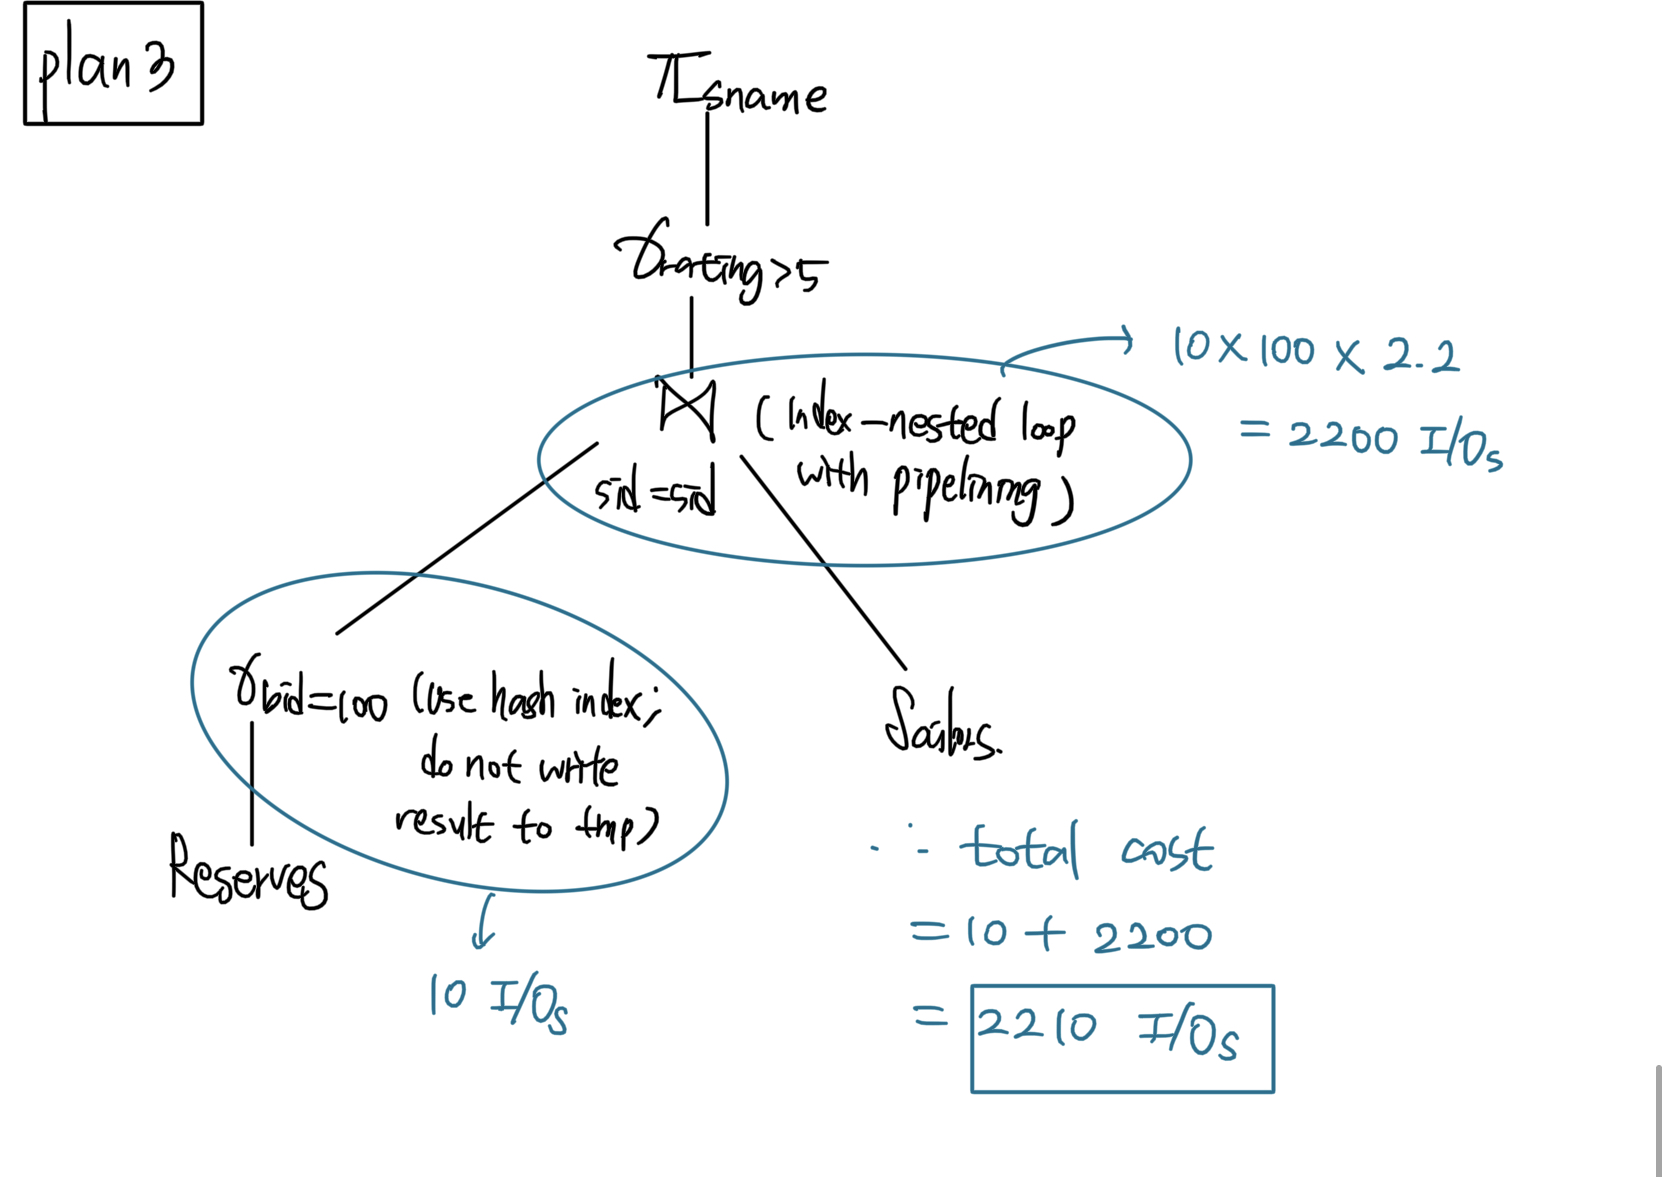 plan 3
π sname
σ rating>5
⋈ (Index-nested loop
with pipelining)
sid=sid
10 × 100 × 2.2
= 2200 I/Os
σ bid=100 (use hash index;
do not write
result to tmp)
Sailors.
Reserves
10 I/Os
∴ total cost
= 10 + 2200
= 2210 I/Os